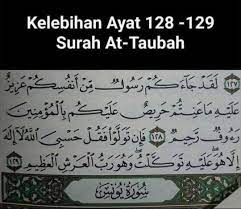 Kelebihan Ayat 128 -129
Surah At-Taubah
١٢٧ لَقَدْ جَاءَكُمْ رَسُولٌ مِّنْ أَنفُسِكُمْ عَزِيزٌ
عَلَيْهِ مَا عَنِتُّمْ حَرِيصٌ عَلَيْكُم بِالْمُؤْمِنِينَ
رَءُوفٌ رَّحِيمٌ ١٢٨ فَإِن تَوَلَّوْا فَقُلْ حَسْبِيَ اللَّهُ لَا إِلَٰهَ
إِلَّا هُوَ عَلَيْهِ تَوَكَّلْتُ وَهُوَ رَبُّ الْعَرْشِ الْعَظِيمِ ١٢٩
سُورَةُ يُونُسَ